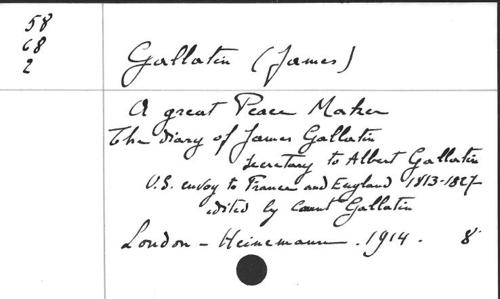 58
68
2
Gallatin (James)
A great Peace Maker
The Diary of James Gallatin
Secretary to Albert Gallatin
U.S. envoy to France and England 1813-1827
edited by Count Gallatin
London - Heinemann . 1914 . 8°